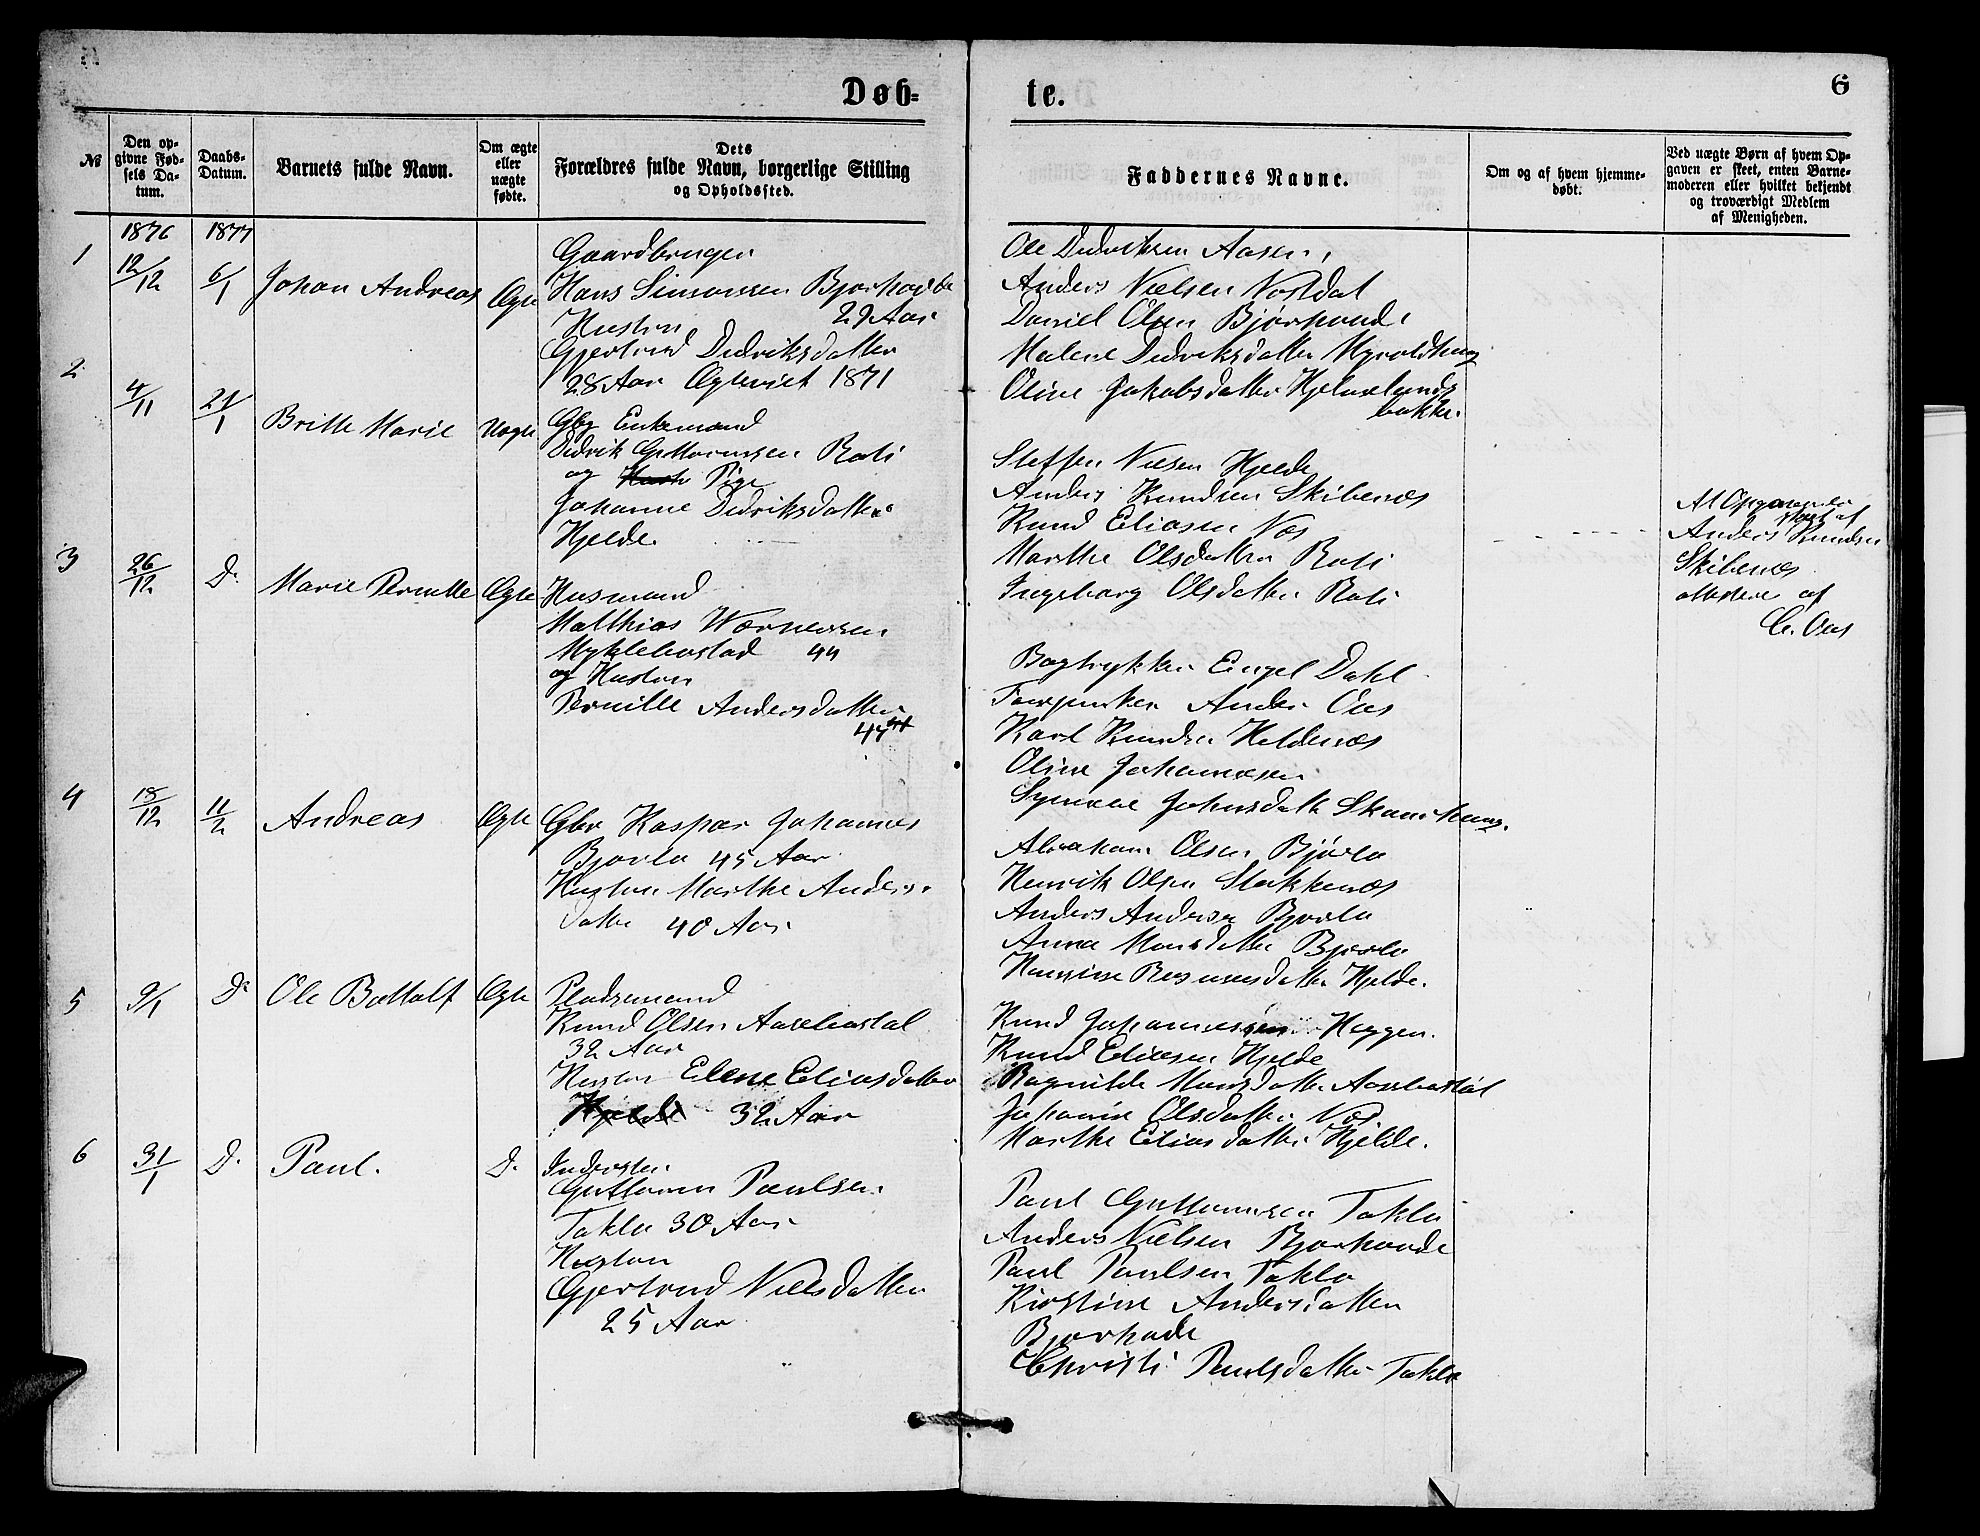 Døb-
te.
6
№
Den op-
givne Fød-
sels Da-
tum.
Daabs-
Datum.
Barnets fulde Navn.
Om ægte
eller
uægte
fødte.
Dets
Forældres fulde Navn, borgerlige Stilling
og Opholdssted.
Faddernes Navne.
Om og af hvem hjemme-
døbt.
Ved uægte Børn af hvem Op-
gaven er skeet, enten Barne-
moderen eller hvilket bekjendt
og troværdigt Medlem
af Menigheden.
1876
1877
1
12/12
6/1
Johan Andreas
Ægte
Gaardbruger
Hans Simonsen
29 Aar
Hustru
Gjertrud Didriksdatter
28 Aar Ægteviet 1871
Ole Didriksen Aasen
Anders Nielsen Nosdal
Daniel Olsen Bjørhovde
Malene Didriksdatter
Oline Jakobsdatter Hjelmelands
bakke.
2
4/11
21/1
Britte Marie
Uægte
Gbr Enkemand
Didrik Guttormsen Roti
og Pige
Johanne Didriksdatter
Hjelde
Steffen Nilsen Hjelde
Anders Knudsen Skibenes
Knud Eliasen Nos
Marthe Olsdatter Roti
Ingeborg Olsdatter Roti
At Opgaven er
skeet af
Anders Knudsen
Skibenæs
attesteres af
C. Aas
3
26/12
D.
Marie Pernille
Ægte
Husmand
Matthias Wærnersen
Myklebostad 44
og Hustru
Pernille Andersdatter
44
Bogtrykker Engel Dahl
Anders Aas
Karl Knudsen Heldenæs
Oline Johannesen
Johnsdatter
4
18/12
11/2
Andreas
Ægte
Gbr Kaspar Johannes
Bjørlo 45 Aar
Hustru Marthe Anders-
datter 40 Aar
Abraham Olsen Bjørlo
Henrik Olsen Stokkenæs
Anders Andersen Bjørlo
Anna Monsdatter Bjørlo
Rasmusdatter Hjelde.
5
9/1
D.
Ole Bottolf
Ægte
Pladsemand
Knud Olsen Aasebøstøl
32 Aar
Hustru Elene Eliasdatter
Hjelde 32 Aar
Knud Johannessen Heggen.
Knud Eliasen Hjelde
Ragnilde Monsdatter Aasebøstøl
Johanne Olsdatter Nos
Marthe Eliasdatter Hjelde.
6
31/1
D.
Paul.
D.
Inderster
Guttorm Paulsen
Taklo 30 Aar
Hustru
Gjertrud Nielsdatter
25 Aar
Paul Guttormsen Taklo
Anders Nielsen Bjørhovde
Paul Paulsen Taklo
Kirstine Andersdatter
Bjørhovde
Christi Paulsdatter Taklo